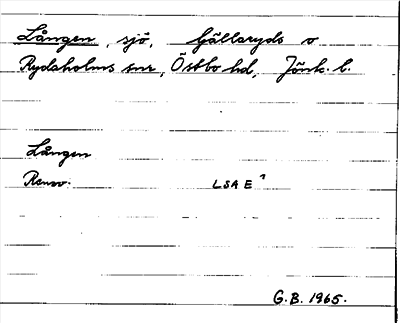 Lången, sjö, Gällaryds o
Rydaholms snr, Östbo hd, Jönk. l.
Lången
Renov. LSA E¹
G.B. 1965.